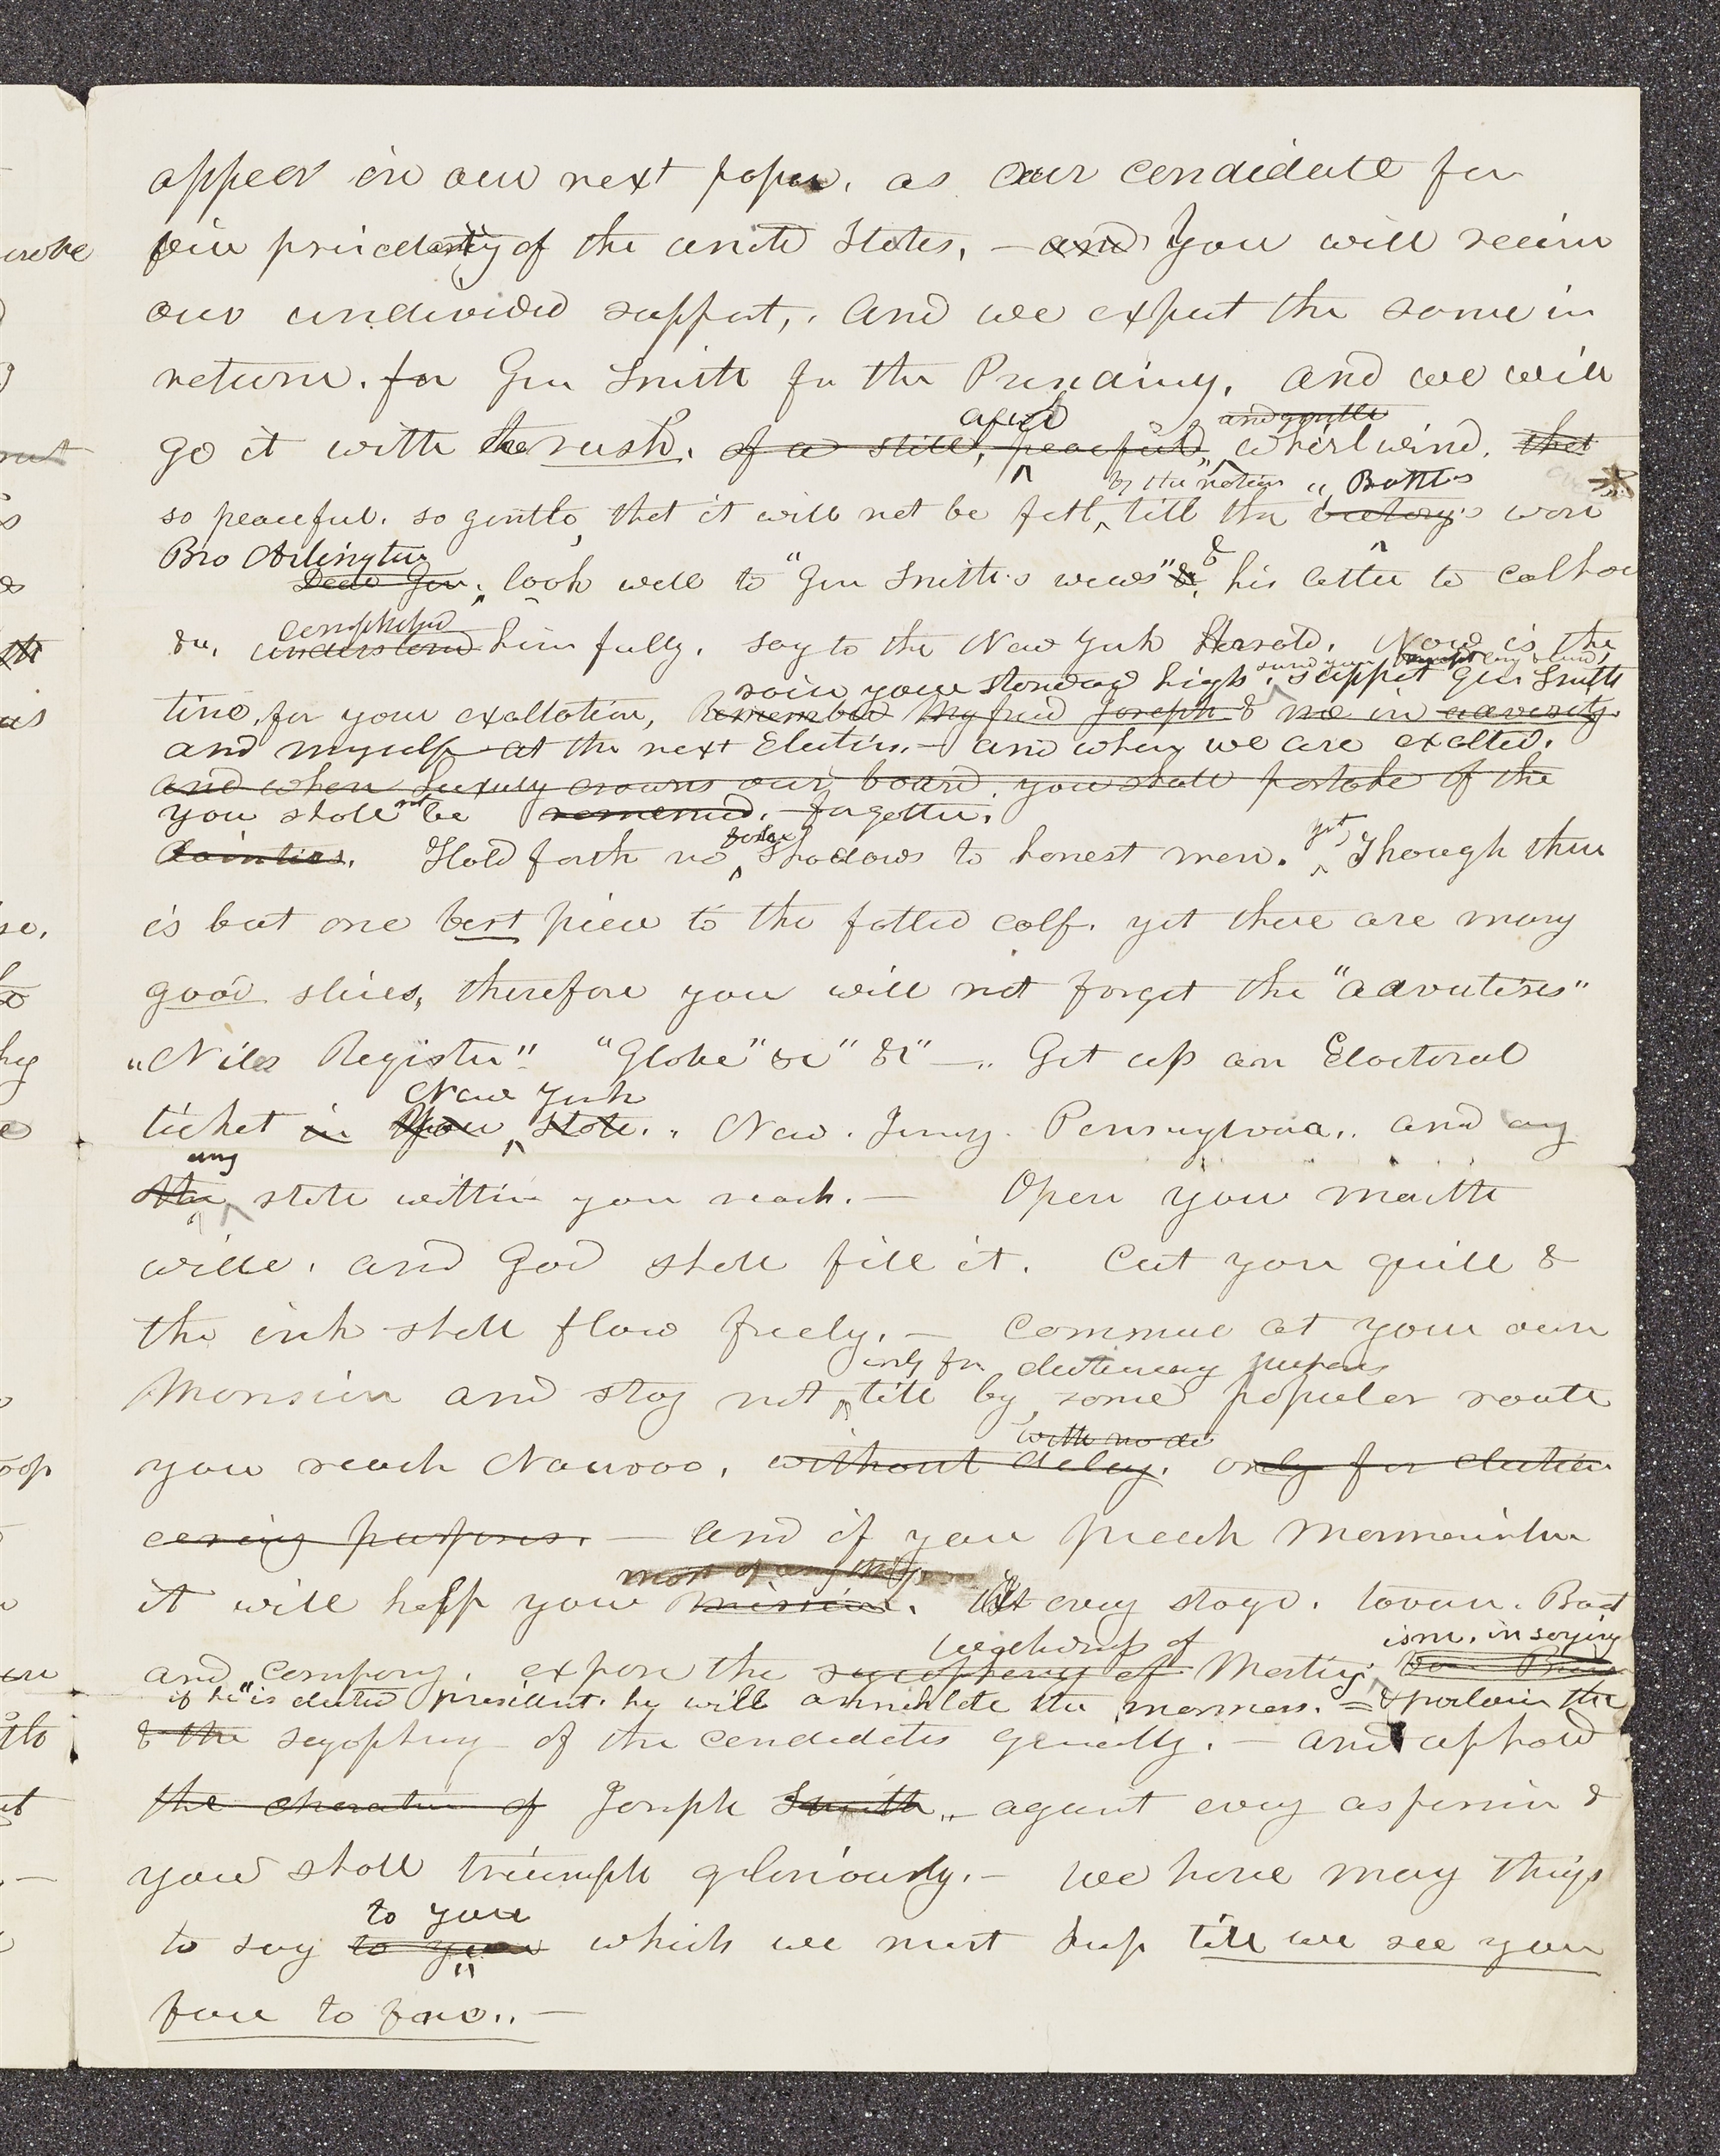 appear in our next paper. as our candidate for
vice precidentcy of the unite States, — and You will receive
our undivided support,. and we expect the same in
return. for Gen Smith for the Presidency. and we will
and gentle
go it with the rush. of a still, peaceful, whirlwind. that
by the nation " Battle is
so peaceful. so gentle, that it will not be felt till the victory is won
Bro Arlington
Dear Gen. look well to "Gen Smith's views" & his letter to Calhou
comprehend
&c. understand him fully. say to the New York Herald. Now is the
raise your standard high. support Gen Smith
time, for your exaltation, Remember my fried Joseph & me in adversity
and myself at the next Election. — and when we are exalted.
and when Luxury crowns our board. you shall partake of the
you shall not be forgotten.
dainties. Hold forth no false shadows to honest men. yet Though there
is but one best piece to the fatted calf. yet there are many
good slices, therefore you will not forget the "advertiser"
"Niles Register" "Globe" &c" &c" — " Get up an Electoral
New York
ticket in your state. , New . Jersey . Pensylvania,. and any
any
state within your reach. — Open your mouth
wide, and God shall fill it. Cut your quill &
the ink shall flow freely. — Commnce at your own
only for electioneering purposes
Monsiun and stay not till by some popular route
with no de
you reach Nauvoo. without delay. only for election
eering purposes. — and if you preach mormonism
most of any thing
it will help you mission. At every stage. tavern. Boat
wealwhip of ism. in saying
and company. expose the sycophancy of Martin
if he "is elected president. he will annihilate the mormons. = & proclaim the
& the sycophncy of the candidates generally. — and uphold
the character of Joseph Smith.. against every aspersion &
you shall triumph gloriously. — We have many things
to you
to say to you which we must keep till we see you
face to face.. —